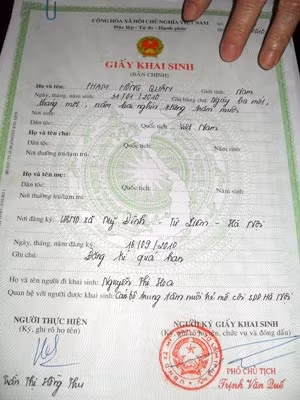 CỘNG HÒA XÃ HỘI CHỦ NGHĨA VIỆT NAM
Độc lập - Tự do - Hạnh phúc
/2010
GIẤY KHAI SINH
(BẢN CHÍNH)
Họ và tên: PHẠM HỒNG QUÂN Giới tính: Nam
Ngày, tháng, năm sinh: 31/01/2010 Ghi bằng chữ: Ngày ba mốt,
tháng một, năm hai nghìn không trăm mười
Nơi sinh:
Dân tộc: Quốc tịch: Việt Nam
Họ và tên cha:
Dân tộc: Quốc tịch: Năm sinh:
Nơi thường trú/tạm trú:
Họ và tên mẹ:
Dân tộc: Quốc tịch: Năm sinh:
Nơi thường trú/tạm trú:
Nơi đăng ký: UBND xã Mỹ Đình - Từ Liêm - Hà Nội
Ngày, tháng, năm đăng ký: /09/2010
Ghi chú: Đăng ký quá hạn
Họ và tên người đi khai sinh: Nguyễn Thị Hoa
Quan hệ với người được khai sinh: Cán bộ trung tâm nuôi trẻ mồ côi Hà Nội
NGƯỜI THỰC HIỆN
(Ký, ghi rõ họ tên)
Trần Thị Hồng Thu
NGƯỜI KÝ GIẤY KHAI SINH
(Ký, ghi rõ họ tên, chức vụ và đóng dấu)
PHÓ CHỦ TỊCH
Trịnh Văn Quế